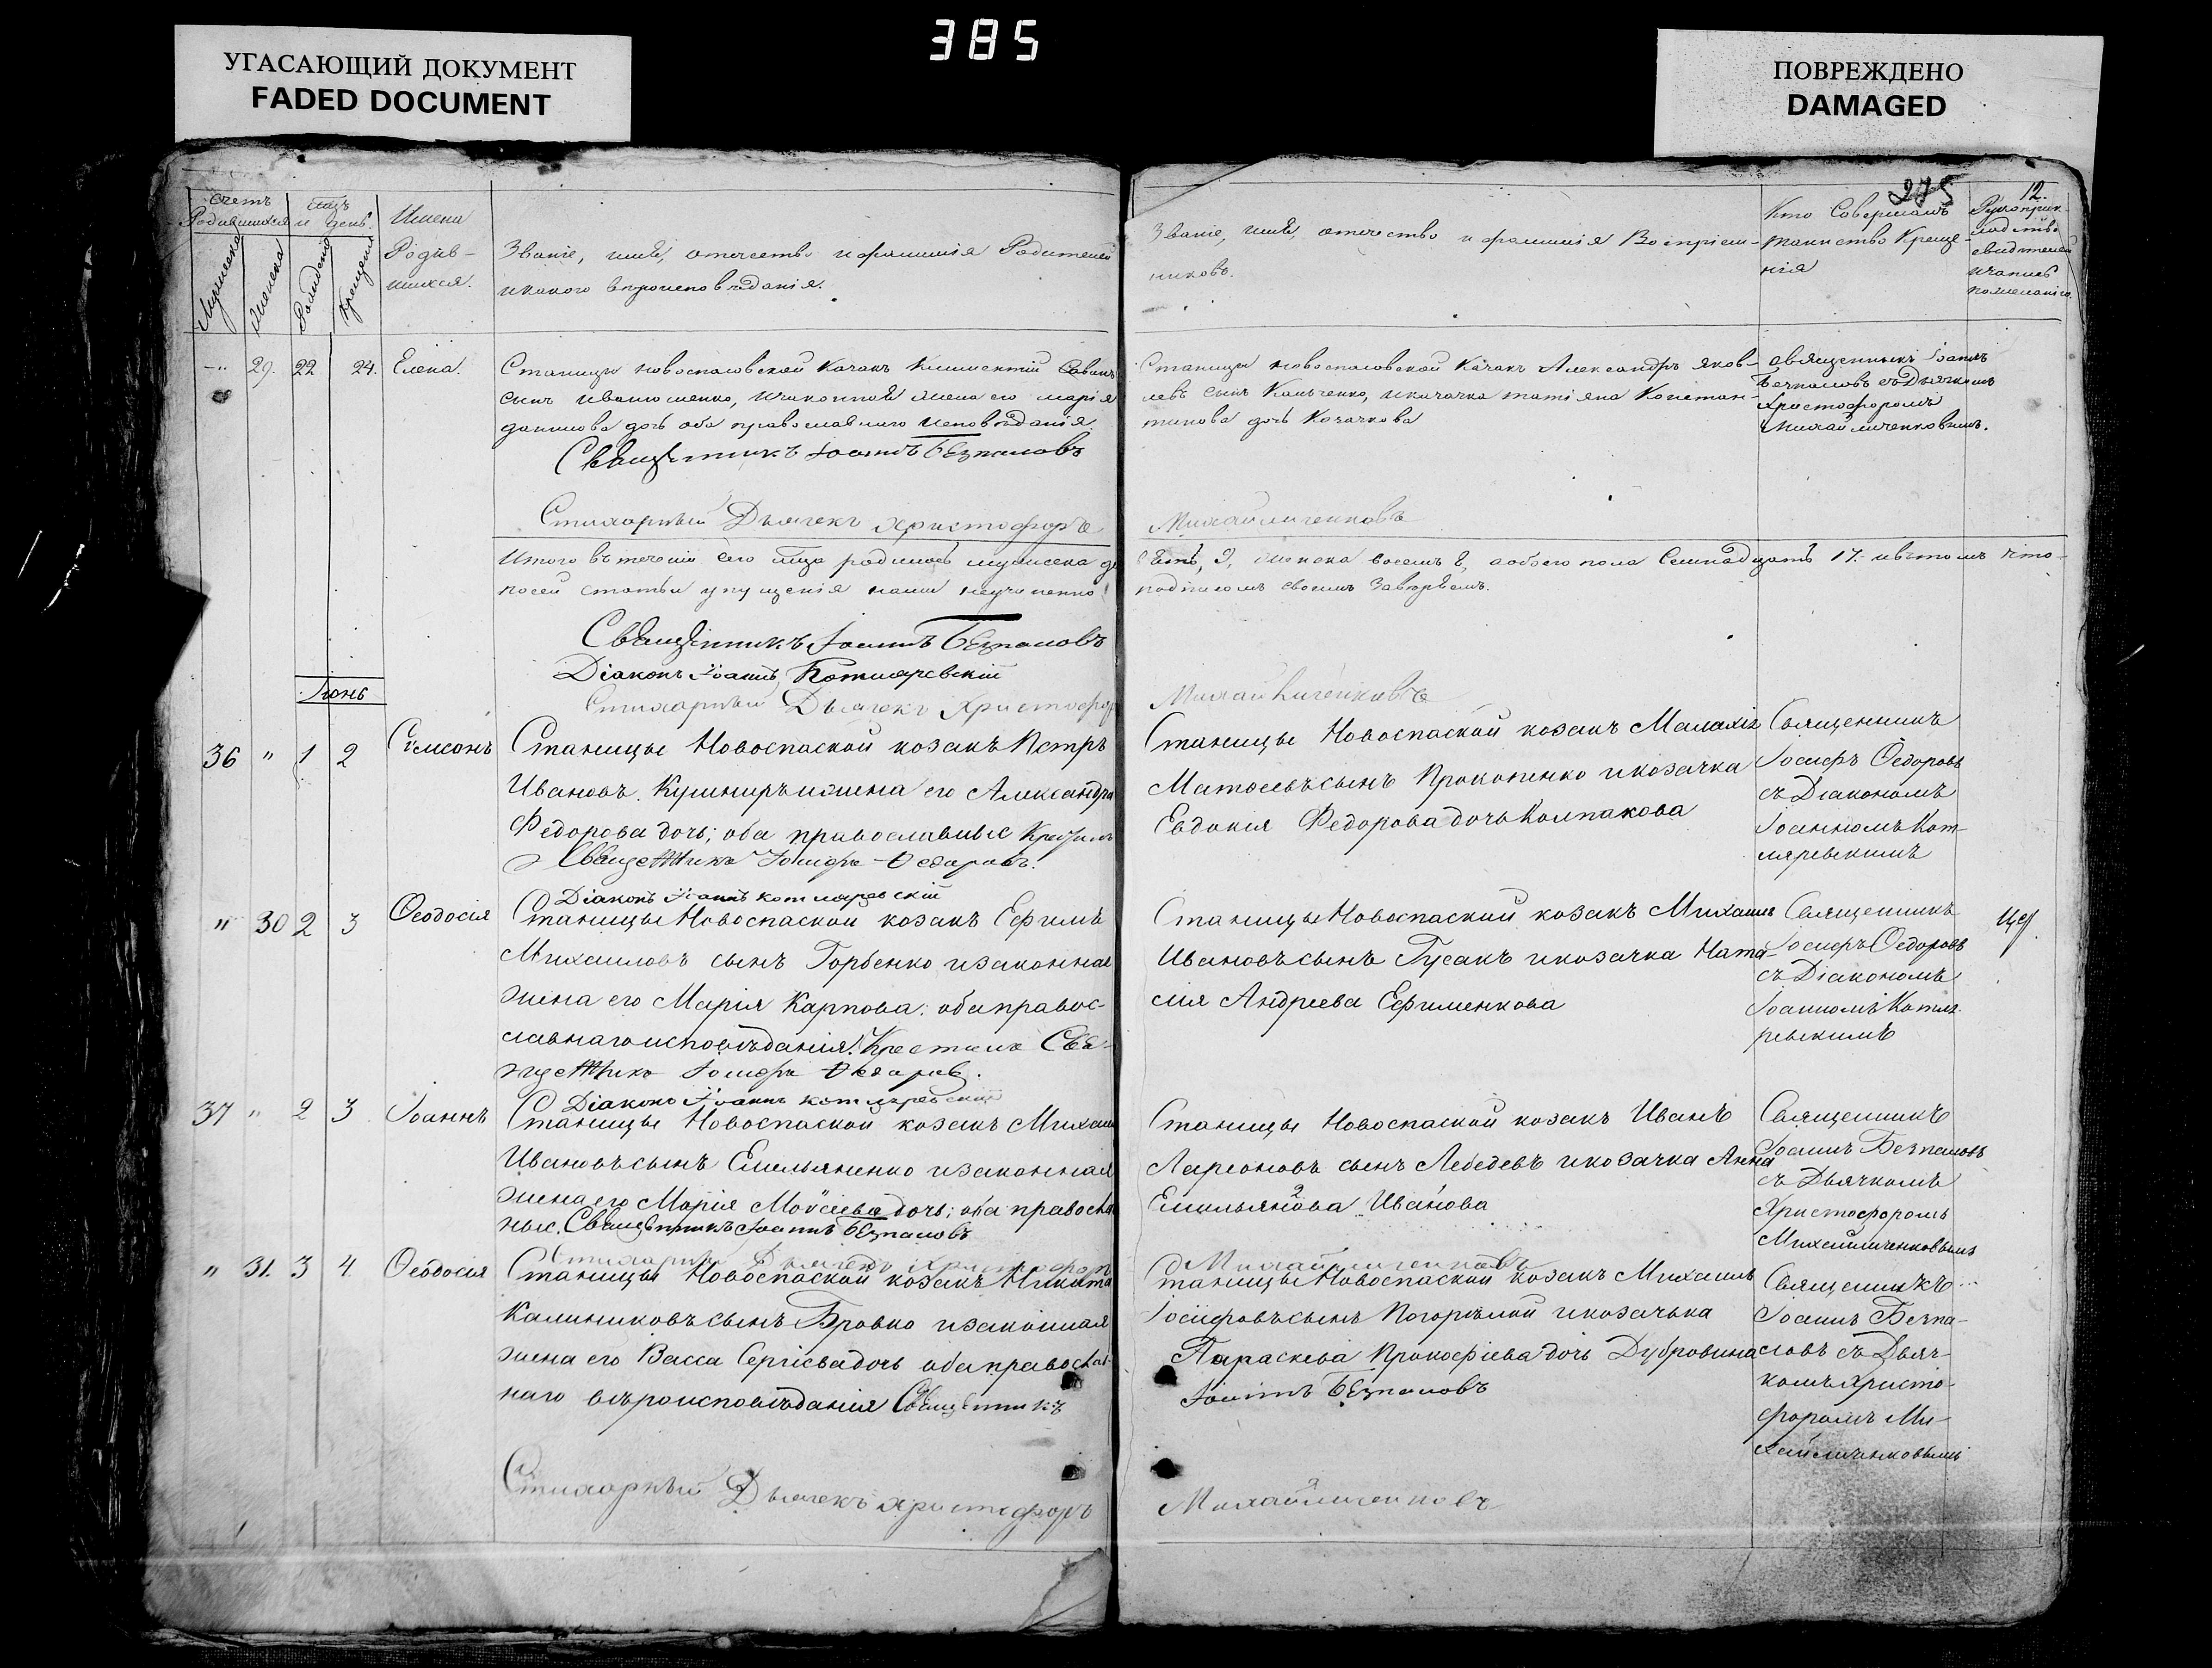 385
УГАСАЮЩИЙ ДОКУМЕНТ
FADED DOCUMENT
ПОВРЕЖДЕНО
DAMAGED
275
12.
Счетъ
Родившихся
мцъ
и день.
Мужеска
Женска
Рождения
Крещения
Имена
Родив-
шихся.
Званіе, имя, отечество и фамилія Родителей
и какого вероисповѣданія.
Званіе, имя, отечество и фамилія Воспріем-
никовъ.
Кто Совершалъ
таинство Креще-
нія
Рукоприк-
ладство
свидѣтелей
29. 22 24. Елена.
Станицы Новоспасовской Казакъ
сынъ Иванющенко, и законная жена его Марія
данилова дочь оба православнаго исповѣданія.
Священникъ Іоаннъ Безпаловъ
Стихарный Дьячекъ Христофоръ
Станицы Новоспасовской Казакъ Александръ Яков-
левъ сынъ Капченко, и казачка татіяна Констан-
тинова дочь Казачкова
Михайличенковъ
Священникъ Іоаннъ
Безпаловъ съ Дьячкомъ
Христофоромъ
Михайличенковымъ.
Итого въ теченіи сего мца родилось мужеска де
вять, 9, женска восемь 8, а обоего пола Семнадцать 17. и въ томъ что
по сей статьи упущенія нами неучиненно
подписомъ своимъ Заверяемъ.
Священникъ Іоаннъ Безпаловъ
Діаконъ Іоаннъ Котляревскій
Стихарный Дьячекъ Христофор
Михайличенковъ
Іюнь
36 " 1 2 Симеонъ
Станицы Новоспаской козакъ Петръ
Ивановъ Кушниръ и жена его Александра
Федорова дочь; оба православные Крестилъ
Священникъ Іосифъ Ѳедоровъ.
Діаконъ Іоаннъ Котляревскій
Станицы Новоспаской козакъ Малахія
Матвеевъ сынъ Прокопенко и козачка
Евдокія Федорова дочь Колпакова
Священникъ
Іосифъ Ѳедоровъ
съ Діакономъ
Іоанномъ Кот-
ляревскимъ
" 30 2 3 Ѳеодосія
Станицы Новоспаской козакъ Ефимъ
Михаиловъ сынъ Горбенко и законная
жена его Марія Карпова; оба правос-
славнаго исповѣданія. Крестилъ Свя-
щенникъ Іосифъ Ѳедоровъ.
Діаконъ Іоаннъ Котляревскій
Станицы Новоспаской козакъ Михаилъ
Ивановъ сынъ Гусакъ и козачка Ната-
лия Андреева Ефименкова
Священникъ
Іосифъ Ѳедоровъ
съ Діакономъ
Іоанномъ Котля-
ревскимъ
37 " 2 3 Іоаннъ
Станицы Новоспаской козакъ Михаилъ
Ивановъ сынъ Емельяненко и законная
жена его Марія Мойсіева дочь; оба православ
ныс. Священникъ Іоаннъ Безпаловъ
Стихарный Дьячекъ Христофоръ
Станицы Новоспаской козакъ Иванъ
Ларіоновъ сынъ Лебедевъ и козачка Анна
Емильянова Иванова
Михайличенковъ
Священникъ
Іоаннъ Безпаловъ
съ Дьячкомъ
Христофоромъ
Михайличенковымъ
" 31. 3 4. Ѳеодосія
Станицы Новоспаской козакъ Никита
Калиниковъ сынъ Бровко и законная
жена его Васса Сергіева дочь оба православ-
наго вѣроисповѣданія Священникъ
Іоаннъ Безпаловъ
Стихарный Дьячекъ Христофоръ
Станицы Новоспаской козакъ Михаилъ
Іосифовъ сынъ Погорелой и козачька
Параскева Прокофіева дочь Дубровина
Михайличенковъ
Священникъ
Іоаннъ Безпа-
ловъ съ Дьяч-
комъ Христо-
форомъ Ми-
хайличенковымъ